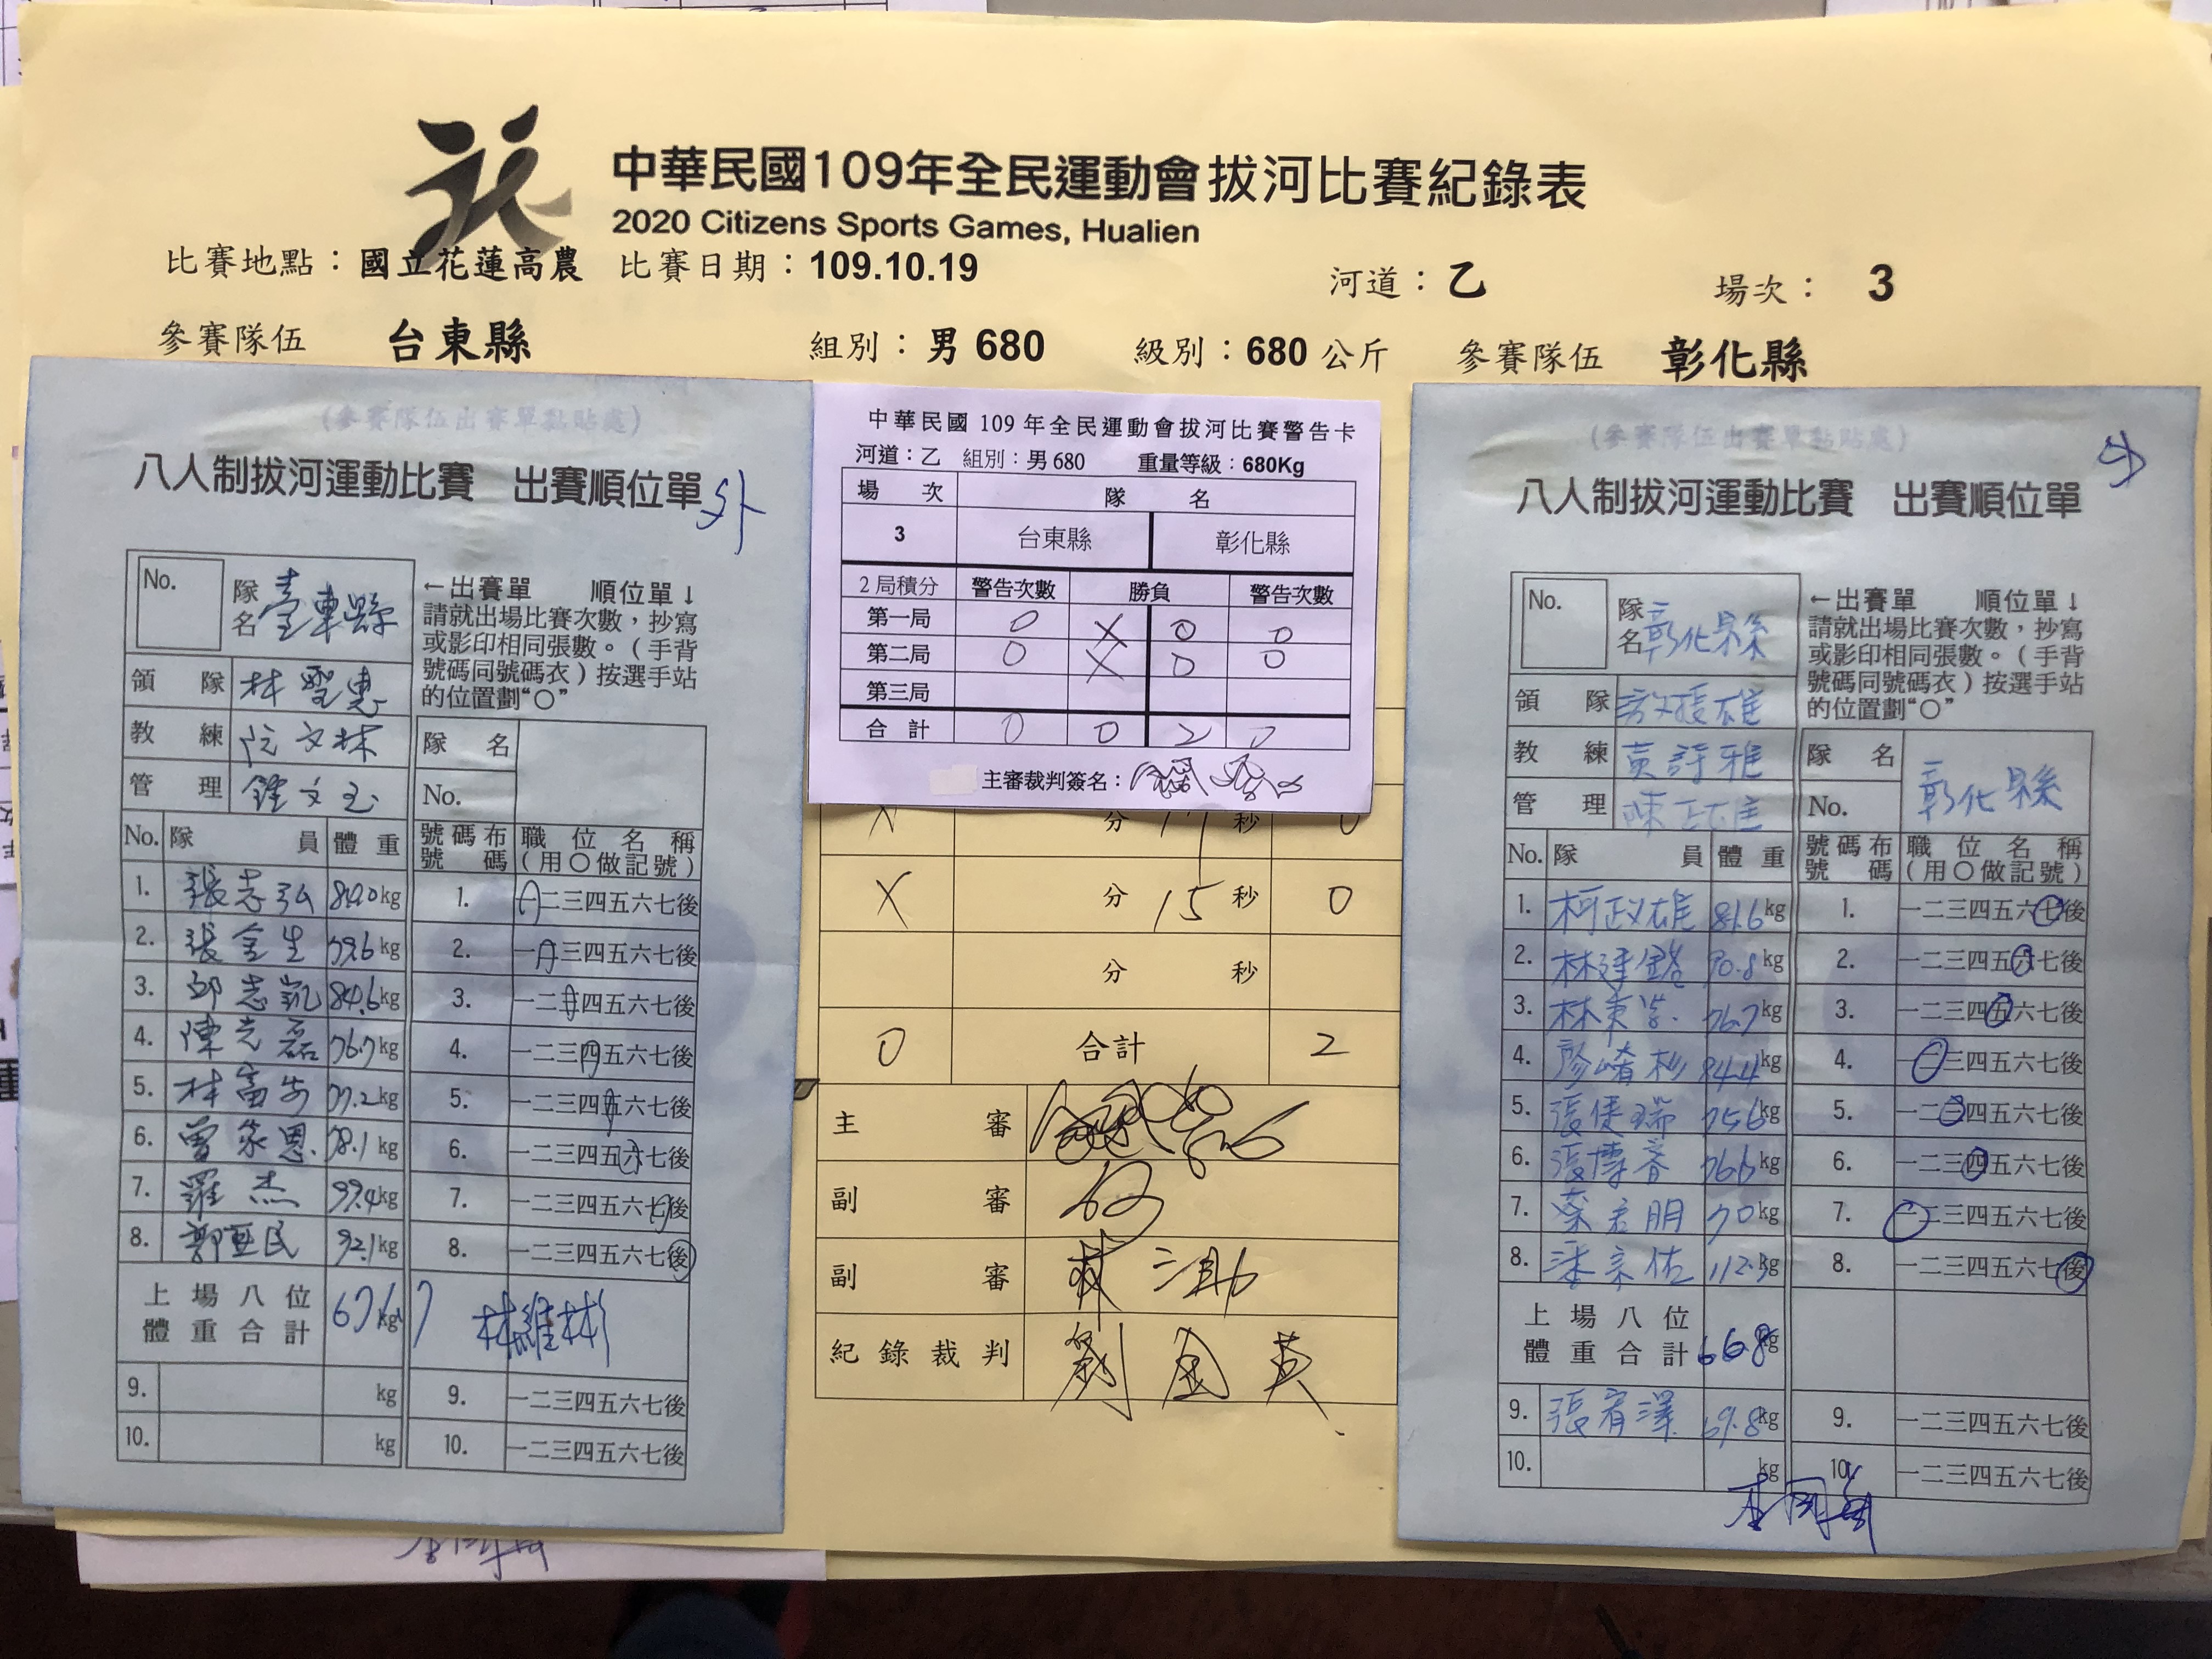 中華民國109年全民運動會拔河比賽紀錄表
2020 Citizens Sports Games, Hualien
比賽地點：國立花蓮高農 比賽日期：109.10.19 河道：乙 場次： 3
參賽隊伍 台東縣 組別：男 680 級別：680 公斤 參賽隊伍 彰化縣
(參賽隊伍出賽單黏貼處)
八人制拔河運動比賽 出賽順位單
外
No.
隊名 臺東縣
←出賽單 順位單↓
請就出場比賽次數，抄寫
或影印相同張數。（手背
號碼同號碼衣）按選手站
的位置劃“○”
領 隊 林聖惠
教 練 阮文林
管 理 鍾文玉
隊 名
No.
No. 隊 員 體 重
號碼布號碼 職位名稱（用○做記號）
1. 張志弘 kg 1. 一二三四五六七後
2. 張金生 79.6kg 2. 一二三四五六七後
3. 邱志凱 84.6kg 3. 一二三四五六七後
4. 陳志磊 76.7kg 4. 一二三四五六七後
5. 林富 77.2kg 5. 一二三四五六七後
6. 曾家恩 78.1kg 6. 一二三四五六七後
7. 羅杰 99.4kg 7. 一二三四五六七後
8. 民 92.1kg 8. 一二三四五六七後
上場八位
體重合計 kg 林維彬
9. kg 9. 一二三四五六七後
10. kg 10. 一二三四五六七後
中華民國 109 年全民運動會拔河比賽警告卡
河道：乙 組別：男 680 重量等級：680Kg
場 次 隊 名
3 台東縣 彰化縣
2 局積分 警告次數 勝負 警告次數
第一局 0 X 0 0
第二局 0 X 0 0
第三局
合 計 0 0 2 0
主審裁判簽名：
分 17 秒 0
X 分 15 秒 0
分 秒
0 合計 2
主 審
副 審
副 審
紀錄裁判 劉金英
(參賽隊伍出賽單黏貼處)
八人制拔河運動比賽 出賽順位單
No.
隊名 彰化縣
←出賽單 順位單↓
請就出場比賽次數，抄寫
或影印相同張數。（手背
號碼同號碼衣）按選手站
的位置劃“○”
領 隊 許援雄
教 練 黃詩雅
管 理 陳正雄
隊 名 彰化縣
No.
No. 隊 員 體 重
號碼布號碼 職位名稱（用○做記號）
1. 柯政雄 81.6kg 1. 一二三四五六七後
2. 林建銘 70.8kg 2. 一二三四五六七後
3. 林秉 76.7kg 3. 一二三四五六七後
4. 廖崎杉 84.4kg 4. 一二三四五六七後
5. 張健瑞 75.6kg 5. 一二三四五六七後
6. 張博 76.6kg 6. 一二三四五六七後
7. 朋 70kg 7. 一二三四五六七後
8. 宗佑 112.3kg 8. 一二三四五六七後
上場八位
體重合計 668kg
9. 張宥澤 69.8kg 9. 一二三四五六七後
10. kg 10. 一二三四五六七後